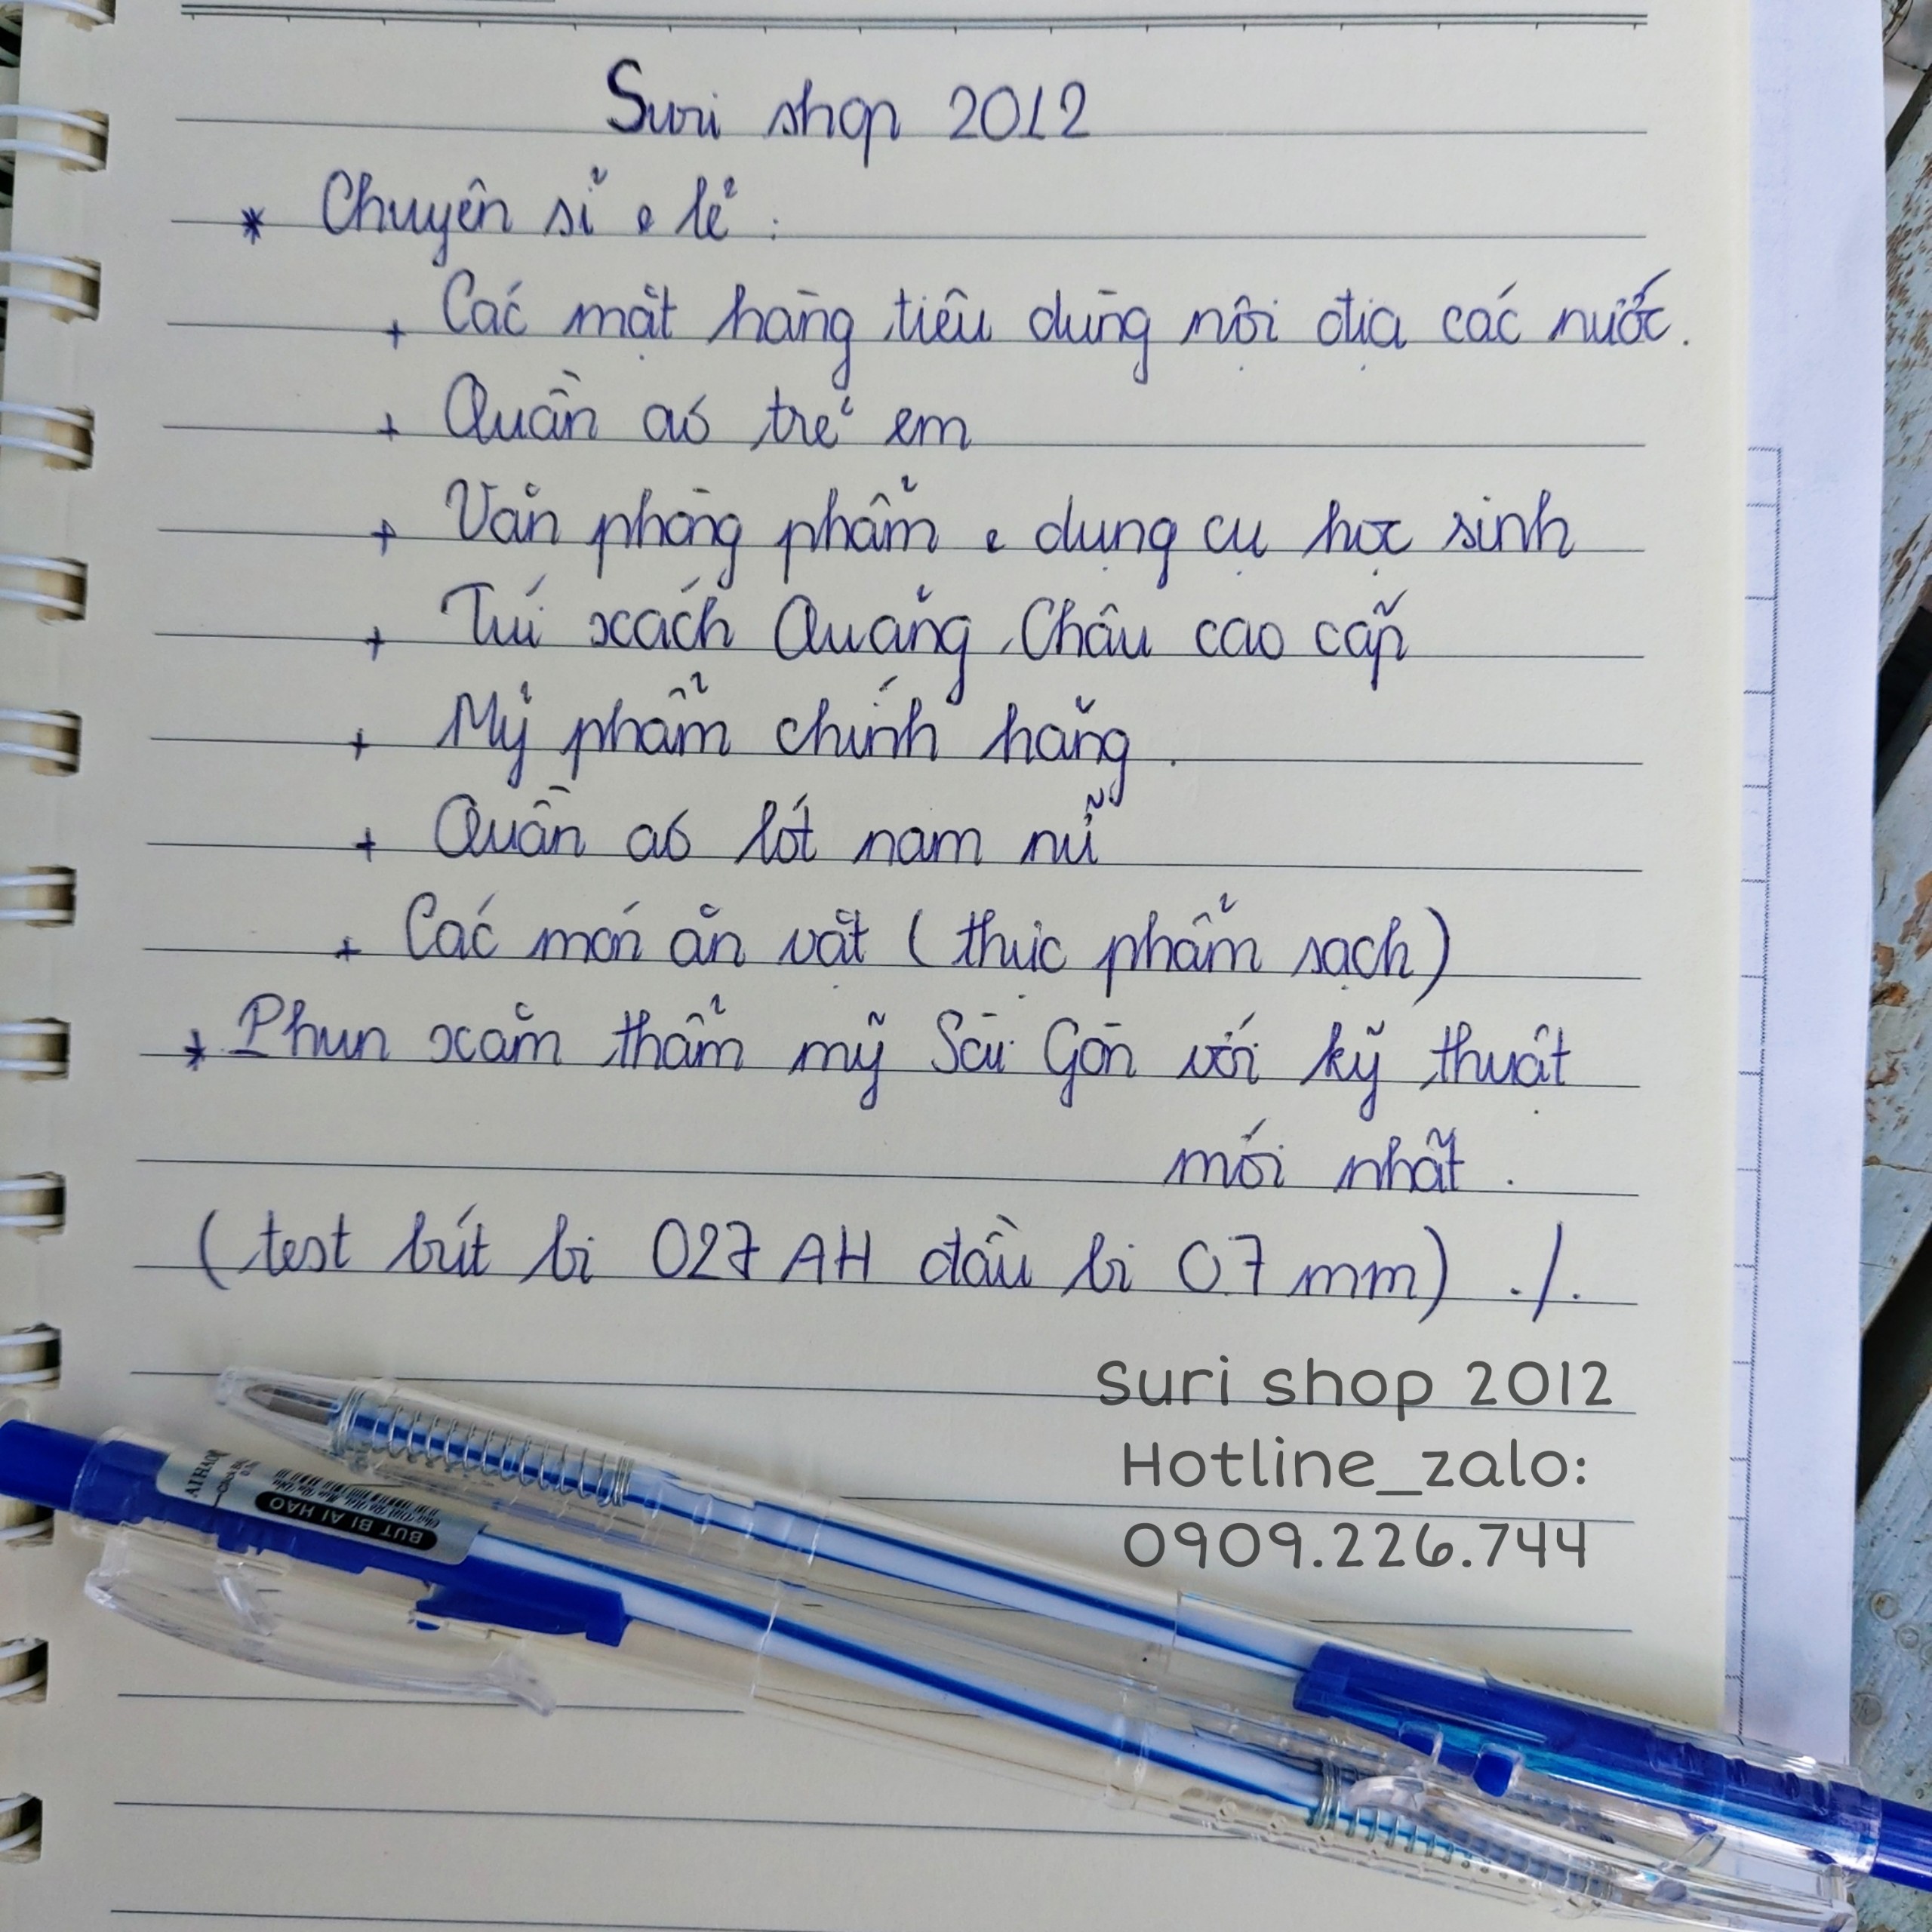 Suri shop 2012
* Chuyên sỉ & lẻ :
+ Các mặt hàng tiêu dùng nội địa các nước.
+ Quần áo trẻ em
+ Văn phòng phẩm & dụng cụ học sinh
+ Túi xách Quảng Châu cao cấp
+ Mỹ phẩm chính hãng.
+ Quần áo lót nam nữ
+ Các món ăn vặt (thực phẩm sạch)
* Phun xăm thẩm mỹ Sài Gòn với kỹ thuật
mới nhất.
(test bút bi 027 AH đầu bi 0.7 mm) ./.
Suri shop 2012
Hotline_zalo:
0909.226.744
AIHAO
BUT BI AI HAO